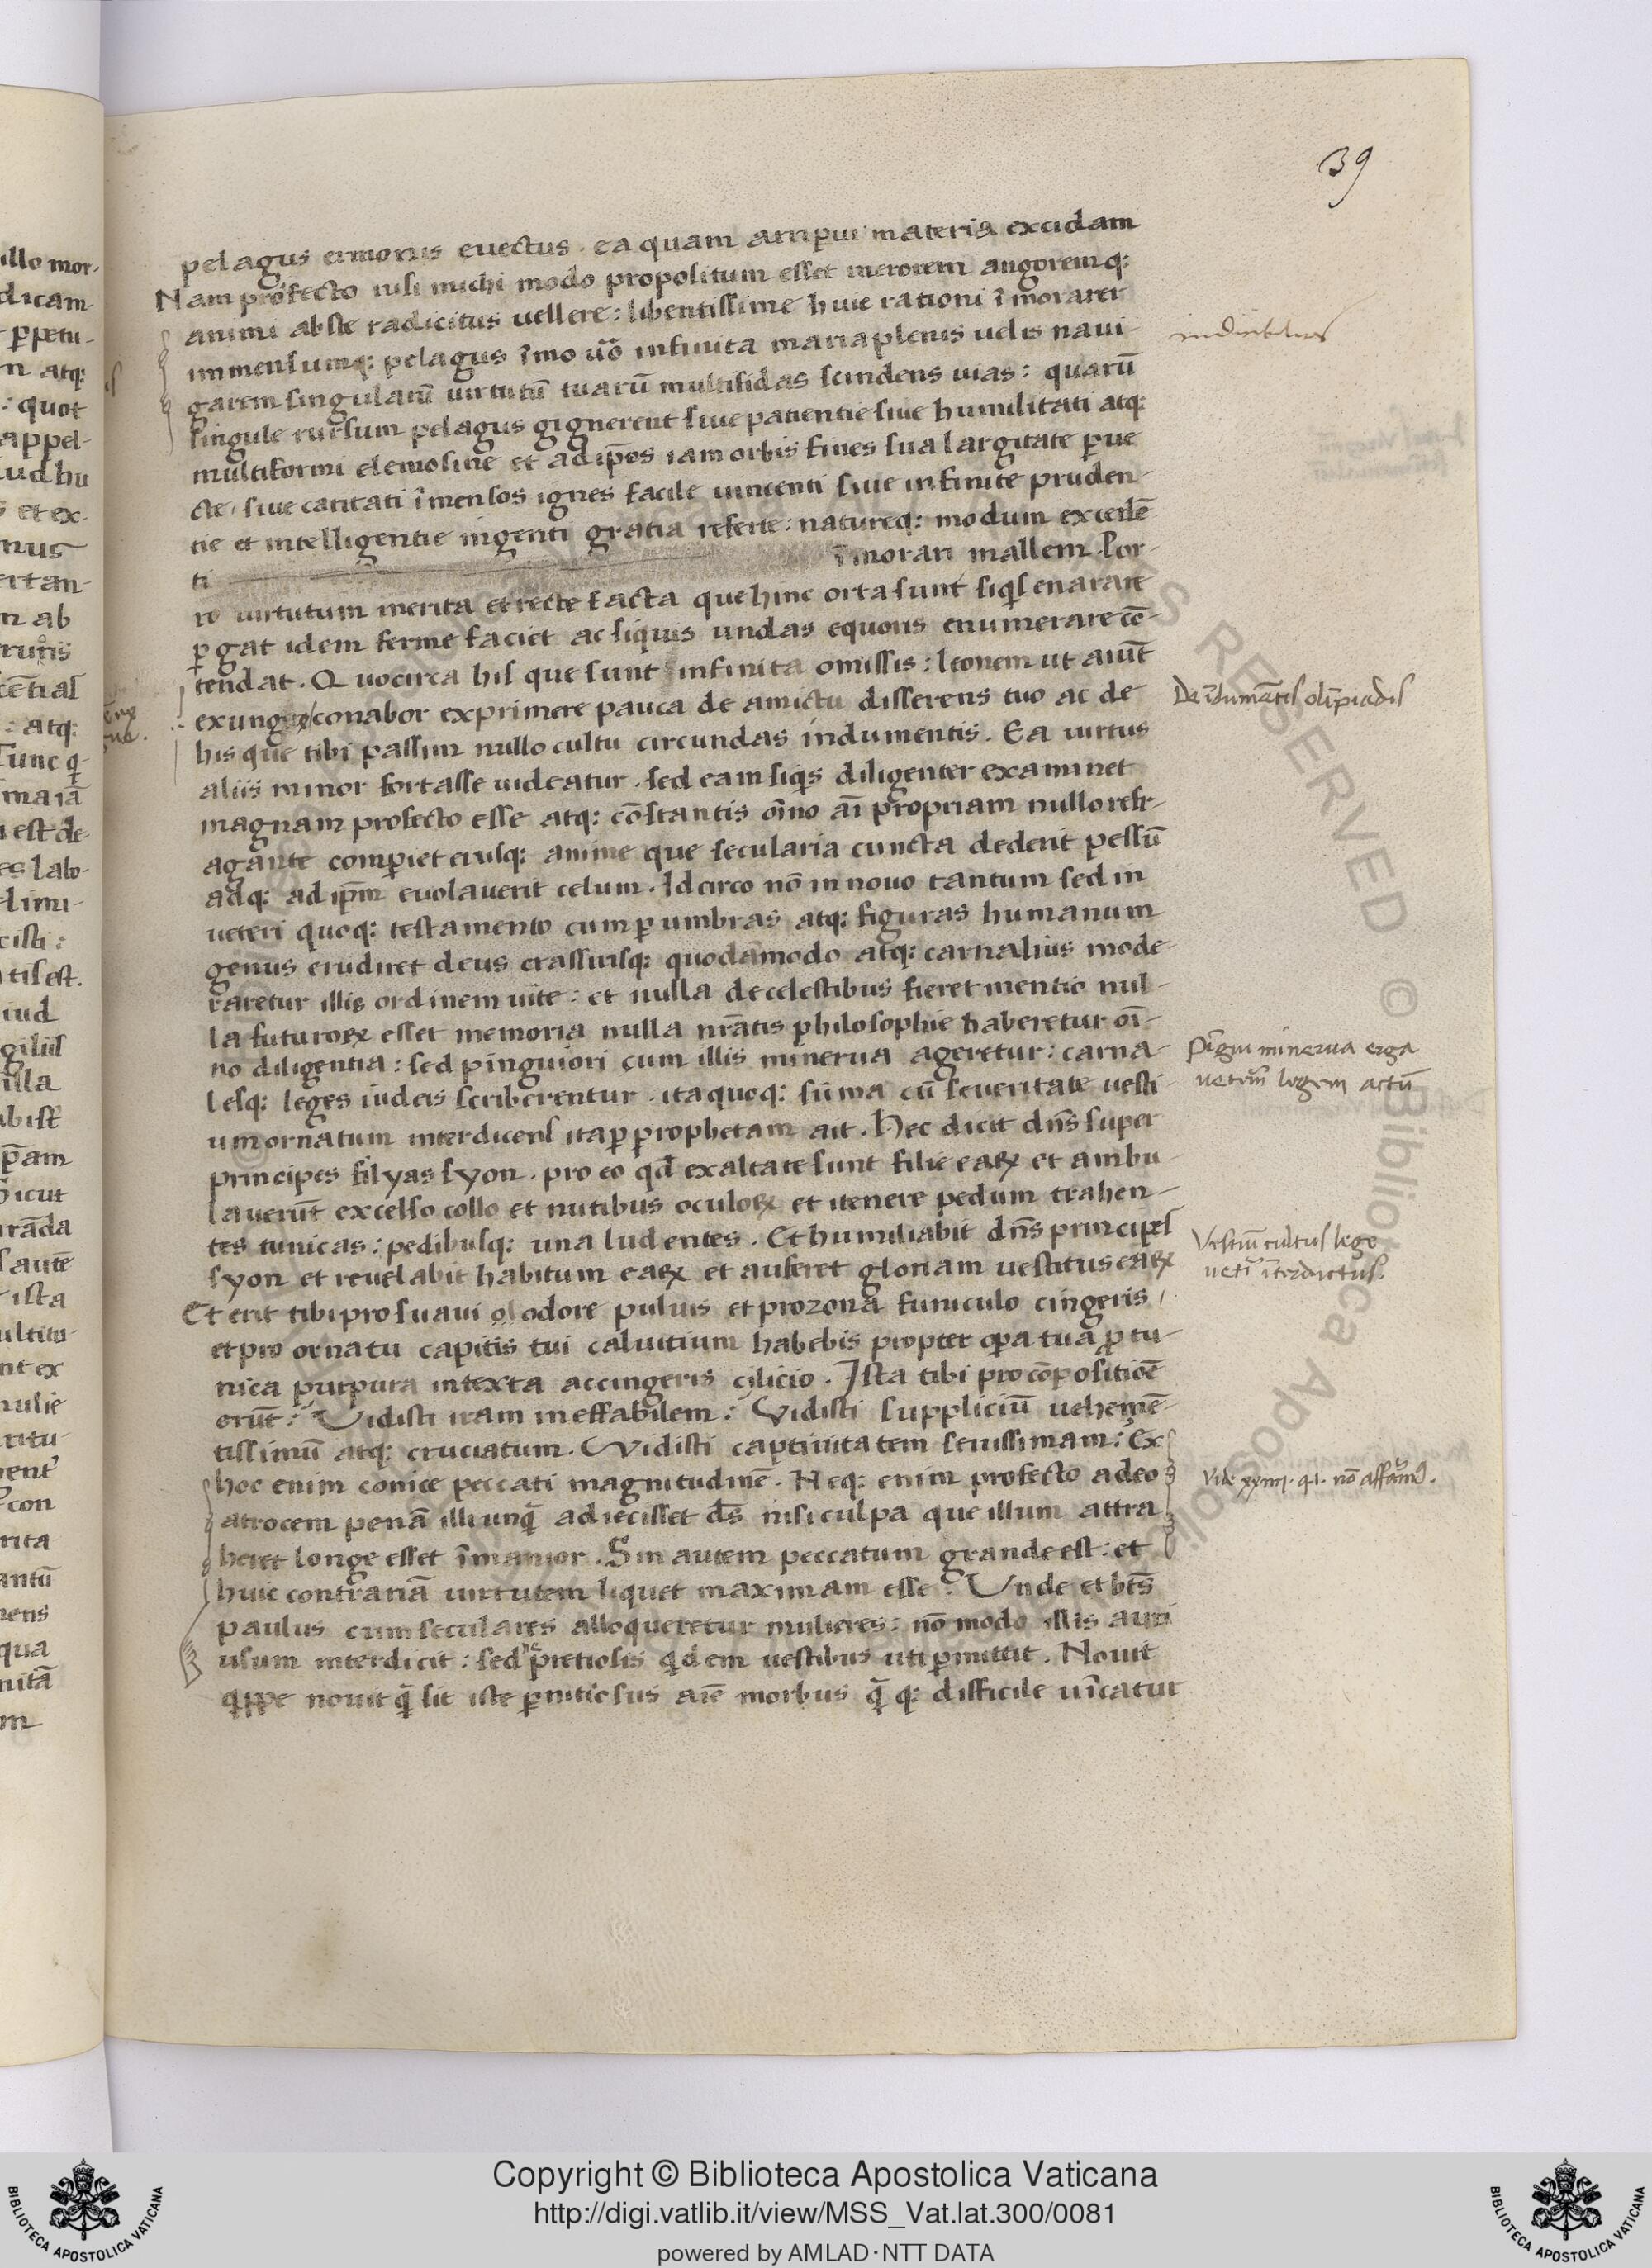 39
pelagus ermonis euectus . ea quam arripui materia excidam
Nam profecto nisi michi modo propositum esset merorem angoremq:
animi abste radicitus uellere : libentissime huic rationi īmorarer
immensumq: pelagus īmo uō infinita maria plenis uelis naui-
garem singularū uirtutū tuarū multifidas scindens uias : quarū
singule rursum pelagus gignerent siue patientie siue humilitati atq:
multiformi elemosine et ad ip̄os iam orbis fines sua largitate ꝑue
cte , siue caritati īmensos ignes facile uincenti siue infinite pruden-
tie et intelligentie ingenti gratia referte : natureq: modum excedē
ti īmorari mallem . Por-
ro uirtutum merita et recte facta que hinc orta sunt siqs enarare
ꝑgat idem ferme faciet ac siquis undas equoris enumerare cō-
tendat . Quocirca his que sunt infinita omissis : leonem ut aiūt
ex ungue conabor exprimere pauca de amictu disserens tuo ac de
his que tibi passim nullo cultu circundas indumentis . Ea uirtus
aliis minor fortasse uideatur . sed eam siqs diligenter examinet
magnam profecto esse atq: cōstantis oīno aī propriam nullo refr-
agante comꝑiet eiusq: anime que secularia cuncta dederit pessū
adq: ad ip̄m euolauerit celum . Idcirco nō in nouo tantum sed in
ueteri quoq: testamento cum ꝑ umbras atq: figuras humanum
genus erudiret deus crassiusq: quodāmodo atq: carnalius mode-
raretur illis ordinem uite : et nulla de celestibus fieret mentio nul-
la futuroꝝ esset memoria nulla nr̄atis philosophie haberetur oī-
no diligentia : sed pinguiori cum illis minerua ageretur : carna-
lesq: leges iudeis scriberentur . ita quoq: sūma cū seueritate uesti-
um ornatum interdicens ita ꝑ prophetam ait . Hec dicit dn̄s super
principes filyas syon . pro eo qd̄ exaltate sunt filie eaꝝ et ambu-
lauerūt excelso collo et nutibus oculoꝝ et itenere pedum trahen-
tes tunicas : pedibusq: una ludentes . Et humiliabit dn̄s principes
syon et reuelabit habitum eaꝝ et auferet gloriam uestitus eaꝝ
Et erit tibi pro suaui olodore puluis et pro zona funiculo cingeris ,
et pro ornatu capitis tui caluitium habebis propter oꝑa tua ꝓ tu-
nica purpura intexta accingeris cilicio . Ista tibi pro cōpositiōe
erūt : Vidisti iram ineffabilem : Vidisti suppliciū uehemē-
tissimū atq: cruciatum . Vidisti captiuitatem seuissimam : Ex
hoc enim conice peccati magnitudinē . Neq: enim profecto adeo
atrocem penā illi unq̄ adiecisset ds̄ nisi culpa que illum attra
heret longe esset īmanior . Sin autem peccatum grande est : et
huic contrariā uirtutem liquet maximam esse . Unde et bt̄s
paulus cum seculares alloqueretur mulieres : nō modo illis auri
usum interdicit : sed nē pretiosis qdem uestibus uti ꝑmittit . Nouit
qppe nouit q̄ sit iste ꝑnitiosus aīe morbus q̄ q: difficile uīcatur
De īdumētis olīpiadis
Pīgui minerua erga
ueterē legem actū
Vestiū cultus lege
uetī īterdictus.
illo mor-
dicam
ꝑpetu-
n atq:
: quot
appel-
ud hu
et ex-
nus
ertan-
n ab
: atq:
Tunc q
maiā
est de-
es labo-
tis est.
iud
illa
icut
rāda
autē
ista
nt ex
mulie
con
rita
antū
mens
qua
nitā
m
Copyright © Biblioteca Apostolica Vaticana
http://digi.vatlib.it/view/MSS_Vat.lat.300/0081
powered by AMLAD·NTT DATA
BIBLIOTECA APOSTOLICA VATICANA
BIBLIOTECA APOSTOLICA VATICANA